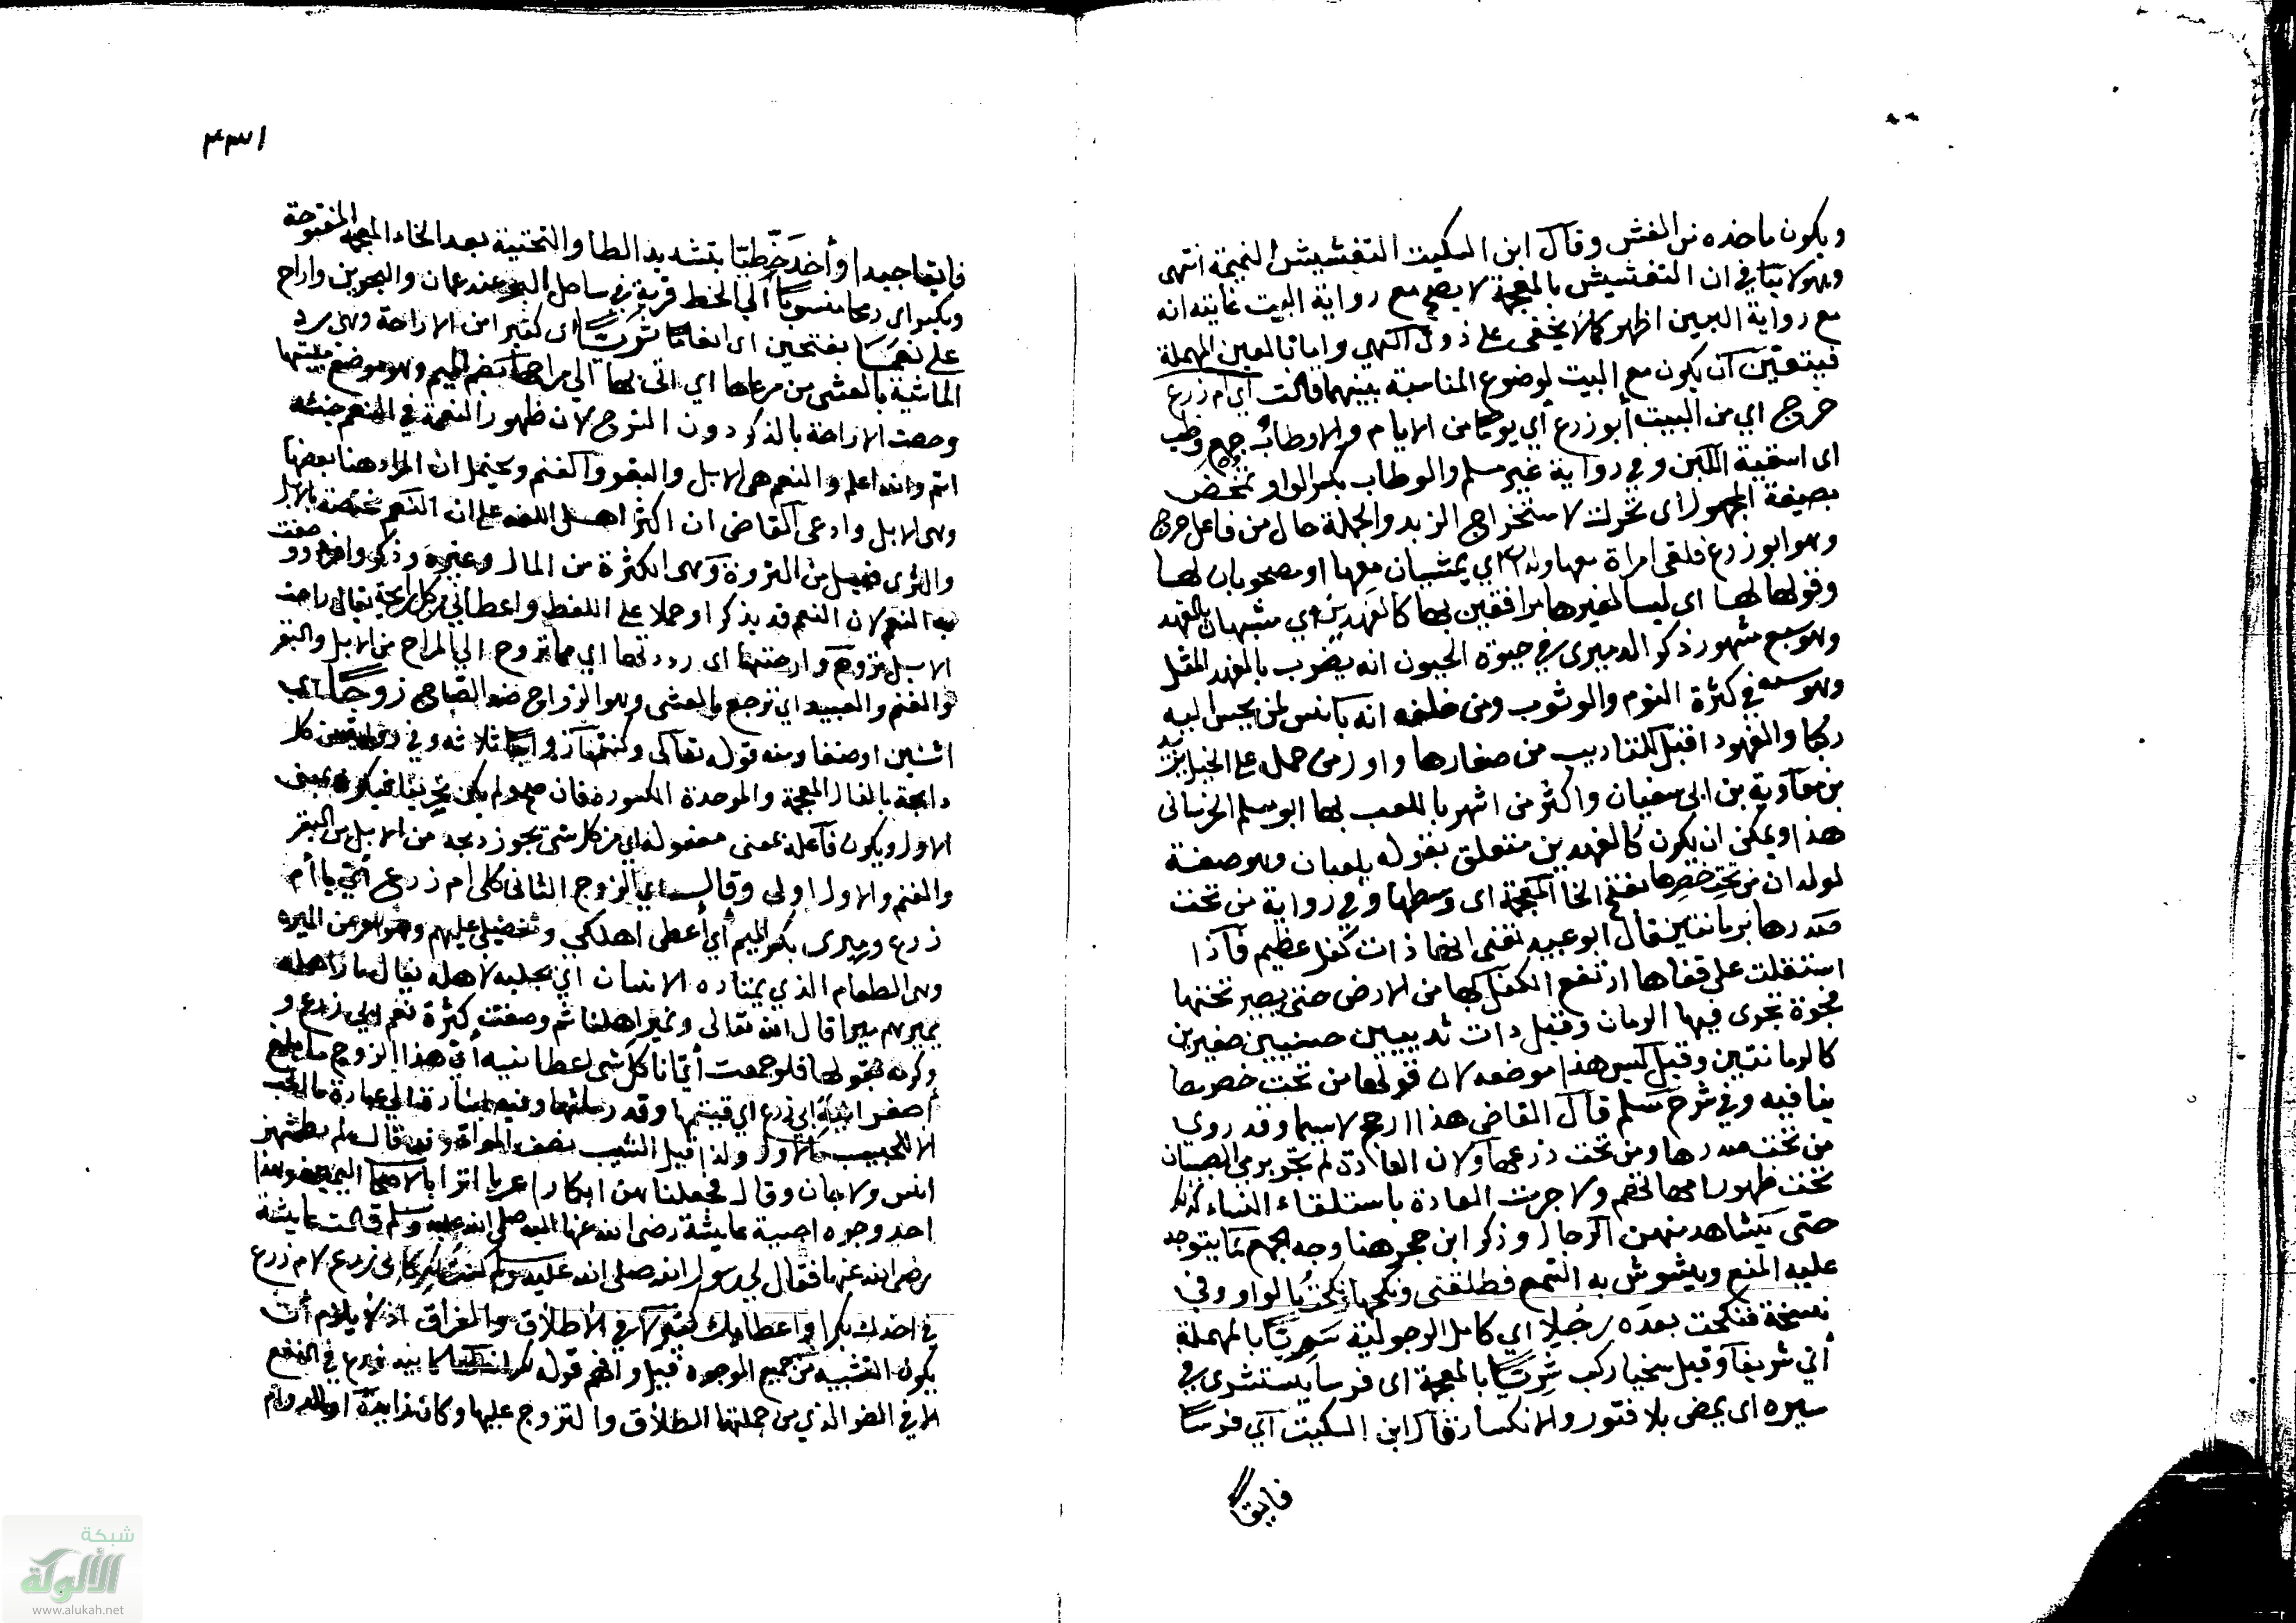 ويكون ماخذه من الغش وقال ابن السكيت التغشيش النميمة انتهى
وهو لا ينافي ان التغشيش بالمعجمة لا يصح مع رواية البيت غايته انه
مع رواية العين اظهر كما لا يخفى على ذوي النهي واما بالعين المهملة
فيتعين ان يكون مع البيت لوضوح المناسبة بينهما قالت اي ام زرع
خرج اي من البيت ابو زرع أي يوما من الايام والاوطاب جمع وطب
اى اسقية اللبن وفي رواية غير مسلم والوطاب بكسر الواو تمخض
بصيغة المجهول اى تحرك لاستخراج الزبد والجملة حال من فاعل خرج
وهو ابو زرع فلقى امراة معها ولدان اي يمشيان معها او مصحوبان لها
وقولها لها اى ليسا لغيرها مرافقين بها كالفهدين اي مشبهان بالفهد
وهو سبع مشهور ذكر الدميرى في حيوة الحيون انه يضرب بالفهد المثل
في كثرة النوم والوثوب ومن خلقه انه يأنس لمن يحسن اليه
والفهود اقبل للتاديب من صغارها واول من حمل على الخيل يزيد
بن معاوية بن ابي سفيان واكثر من اشهر باللعب بها ابو مسلم الخرساني
هذا ويمكن ان يكون كالفهدين متعلق بقوله يلعبان وهو صفة
لولدان من تحت خصرها بفتح الخا المعجمة اى وسطها وفي رواية من تحت
صدرها برمانتين قال ابو عبيد تعنى انها ذات كفل عظيم فاذا
استلقت على قفاها ارتفع الكفل بها من الارض حتى يصير تحتها
فجوة تجرى فيها الرمان وقيل ذات ثديين حسنين صغيرين
كالرمانتين وقيل ليس هذا موضعه لان قولها من تحت خصرها
ينافيه وفي شرح مسلم قال القاضي هذا ارجح لاسيما وقد روي
من تحت صدرها ومن تحت درعها ولان العادة لم تجر برمي الصبيان
تحت ظهور امهاتهم ولا جرت العادة باستلقاء النساء كذلك
حتى يشاهد منهن الرجال وذكر ابن حجر هنا وجه الجمع مما يتوجه
عليه المنع ويشوش به السمع فطلقنى ونكحها فنكحت بالواو وفي
نسخة فنكحت بعده رجلا اي كامل الرجولية سريا بالمهملة
أي شريفا وقيل سخيا ركب شريا بالمعجمة اى فرسا يستشرى في
سيره اى يمضى بلا فتور ولا انكسار قال ابن السكيت اي فرسا
فايقا
٤٣١
فايقا جيدا وأخذ خطيا بتشديد الطا والتحتية بعد الخاء المعجمة المفتوحة
ويكسر اى رمحا منسوبا الي الخط قرية في ساحل البحر عند عمان والبحرين واراح
على نعما بفتحتين اى انعاما ثريا اى كثيرا من الاراحة وهي رد
الماشية بالعشى من مرعاها اي اتى بها الي مراحها بضم الميم وهو موضع مبيتها
وخصت الاراحة بالذكر دون السروح لان ظهور النعمة في النعم حينئذ
اتم والله اعلم والنعم هي الابل والبقر والغنم ويحتمل ان المراد هنا بعضها
وهى الابل وادعى القاضي ان اكثر اهل اللغة على ان النعم مختصة بالابل
والثرى فعيل من الثروة وهي الكثرة من المال وغيره وذكر وافرد وصفت
به النعم لان النعم قد يذكر او حملا على اللفظ واعطاني من كل رايحة يقال راحت
الابل تروح وارحتها اى رددتها اي مما تروح الي المراح من الابل والبقر
والغنم والعبيد اي ترجع بالعشى وهو الرواح ضد الصباح زوجا اي
اثنين او صنفا ومنه قوله تعالى وكنتم ازواجا ثلاثة وفي رواية من كل
ذابحة بالذال المعجمة والموحدة المكسورة فان صح ولم يكن تحريفا فيكون بمعنى
الاول ويكون فاعلة بمعنى مفعولة اي من كل شى يجوز ذبحه من الابل من البقر
والغنم والاول اولى وقال اي الزوج الثانى كلي ام زرع أي يا أم
زرع وميرى بكسر الميم أي أعطى اهلكي وتفضيلي عليهم وهو امر من الميره
وهى الطعام الذي يمتاره الانسان اي يجلبه لاهله يقال مار اهله
يميرهم ميرا قال الله تعالى ونمير اهلنا ثم وصفت كثرة نعم ابي زرع و
وكرمه بقولها فلو جمعت أتانا كل شى اعطانيه أي هذا الزوج ما بلغ
أصغر انية ابي زرع اي قيمتها وقدر ملئها وفيه اشارة الي عبارة ما الحب
الا للحبيب الاول ولذا قيل الثيب نصف المراة وقد قال لم يطمثهن
انس ولا جان وقال فجعلنا هن ابكارا عربا اترابا لاصحاب اليمين وهذا
احد وجوه احبية عايشة رضى الله عنها اليه صلى الله عليه وسلم قالت عايشة
رضى الله عنها فقال لي رسول الله صلى الله عليه وسلم كنت لك كابى زرع لام زرع
في اخذك بكرا واعطايك كثيرا لا في الاطلاق والفراق اذ لا يلزم أن
يكون التشبيه من جميع الوجوه قيل وافهم قوله كنت لك انه لها كابي زرع في النفع
لا في الضر الذي من جملتها الطلاق والتزوج عليها وكان زايدة او للدوام
شبكة
الألوكة
www.alukah.net